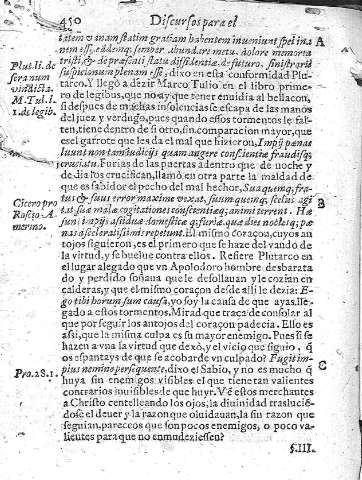 450 Discursos para el
t, item vanam statim gratiam habentem inueniunt spei inanem
esse, eademq; semper abundare metu, dolore memorta
tristi, & de præsenti statu diffidentiæ de futuro, sinistrarũ
suspicionum plenam esse, dixo en esta conformidad Plutarco.
Y llegò a dezir Marco Tulio en el libro primero
de legibus, que no ay que tener enuidia al bellacon,
si despues de muchas insolencias se escapa de las manos
del juez y verdugo, pues quando essos tormentos le falten,
tiene dentro de si otro, sin comparacion mayor, que
es el garrote que les da el mal que hizieron, Impij pœnas
luunt non tam iudicijs quam angore conscientiæ fraudisq;
cruciatu. Furias de las puertas a dentro que de noche y
de dia los crucifican, llamò en otra parte la maldad de
que es sabidor el pecho del mal hechor, Sua quemq; fraus
& suus error maxime vexat, suum quemq; scelus agitat
suæ malæ cogitationes conscientiæq; animi terrent. Hæ
sunt impijs assiduæ domesticæq; furiæ, quæ dies noctesq; pœnas
a sceleratissimis repetunt. El mismo coraçon, cuyos antojos
siguieron, es el primero que se haze del vando de
la virtud, y se buelue contra ellos. Refiere Plutarco en
el lugar alegado que vn Apolodoro hombre desbaratado
y perdido soñaua que le desollauan y le cozian en
calderas, y que el mismo coraçon desde alli le dezia: Ego
tibi horum sum causa, yo soy la causa de que ayas llegado
a estos tormentos. Mirad que traça de consolar al
que por seguir los antojos del coraçon padecia. Ello es
assi, que la misma culpa es su mayor enemigo. Pues si se
hazen a vna la virtud que dexò, y el vicio que siguio, q̃
os espantays de que se acobarde vn culpado? Fugit impius
nemine persequente, dixo el Sabio, y no es mucho q̃
huya sin enemigos visibles el que tiene tan valientes
contrarios inuisibles de que huyr. Vẽ estos merchantes
a Christo centelleando los ojos, la diuinidad trasluciẽdose
el deuer y la razon que oluidauan, la sin razon que
seguian, pareceos que son pocos enemigos, o poco valientes
para que no enmudeziessen?
§.III.
A
B
C
Plut. li. de
sera num
vindicta.
M. Tul. l.
1. de legib.
Cicero pro
Roscio A
merino.
Pro. 28. 1.